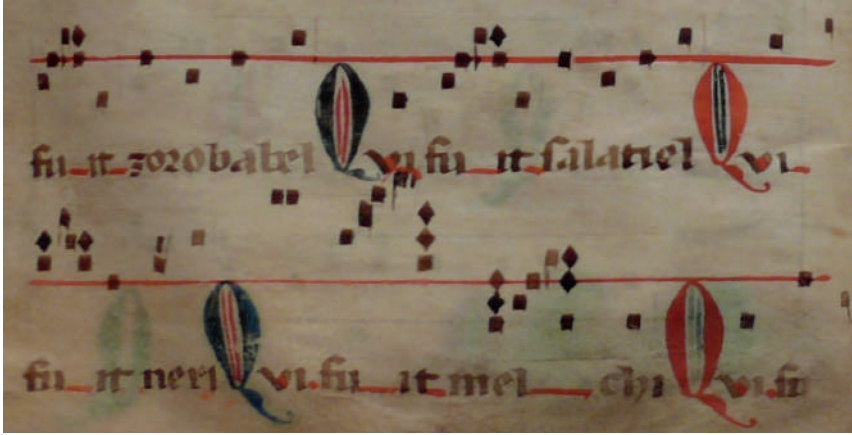 fu it zorobabel Qui fu it salatiel Qui
fu it neri Qui. fu it mel chi Qui. fu